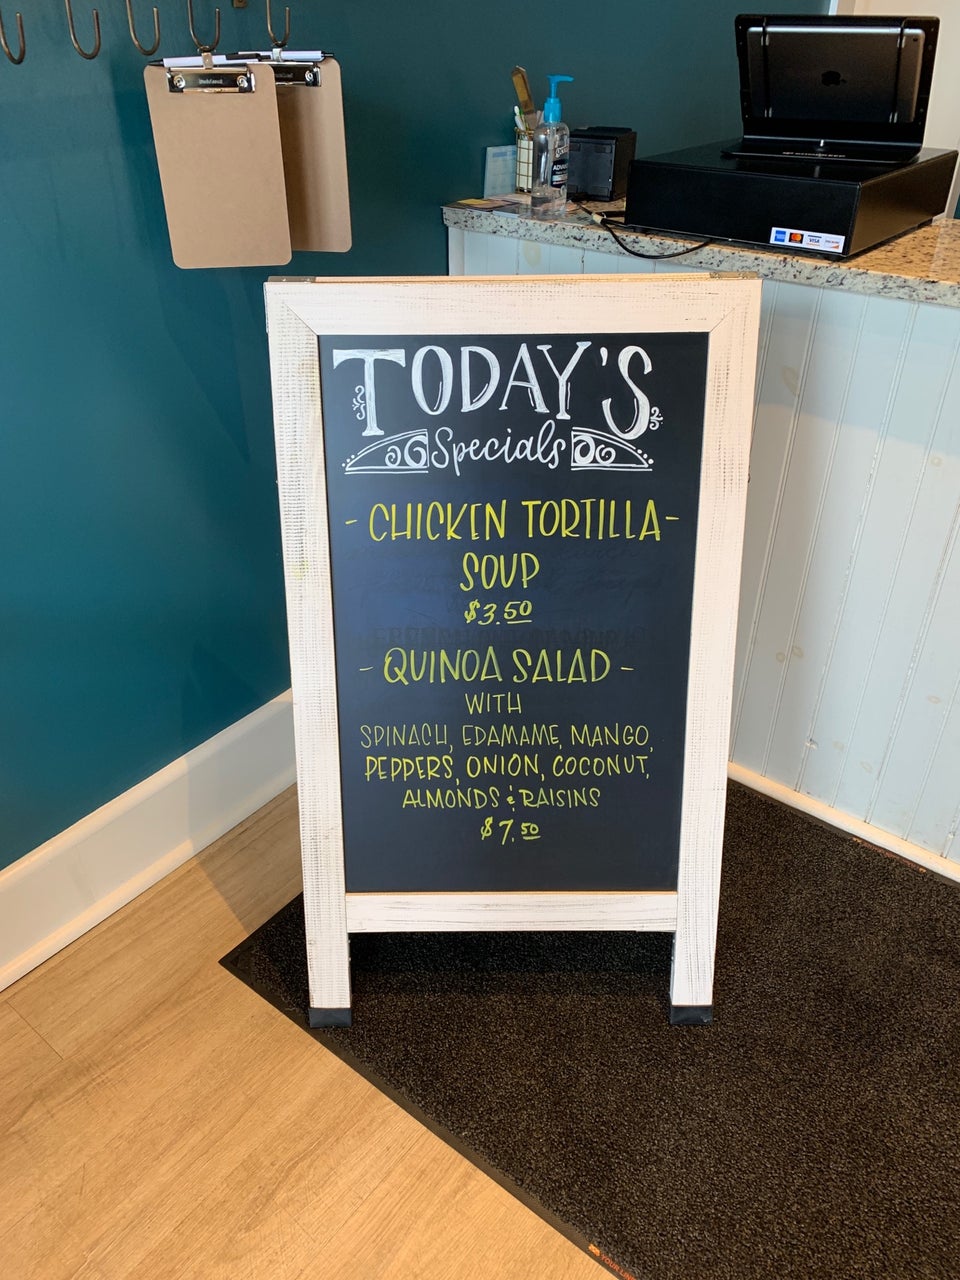 TODAY'S
Specials
- CHICKEN TORTILLA -
SOUP
$3.50
- QUINOA SALAD -
WITH
SPINACH, EDAMAME, MANGO,
PEPPERS, ONION, COCONUT,
ALMONDS & RAISINS
$7.50
VISA
YOUR